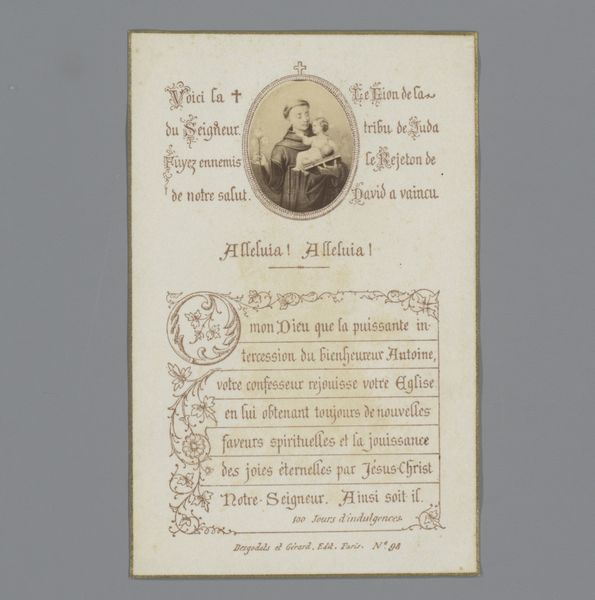 Voici la ✝
du Seigneur.
Fuyez ennemis
de notre salut.
Le Lion de la
tribu de Juda
le Rejeton de
David a vaincu.
Alleluia! Alleluia!
O mon Dieu que la puissante in-
tercession du bienheureux Antoine,
votre confesseur rejouisse votre Eglise
en lui obtenant toujours de nouvelles
faveurs spirituelles et la jouissance
des joies éternelles par Jésus-Christ
Notre-Seigneur. Ainsi soit il.
100 Jours d'indulgences.
Desgodets et Gérard, Edit. Paris. N° 98